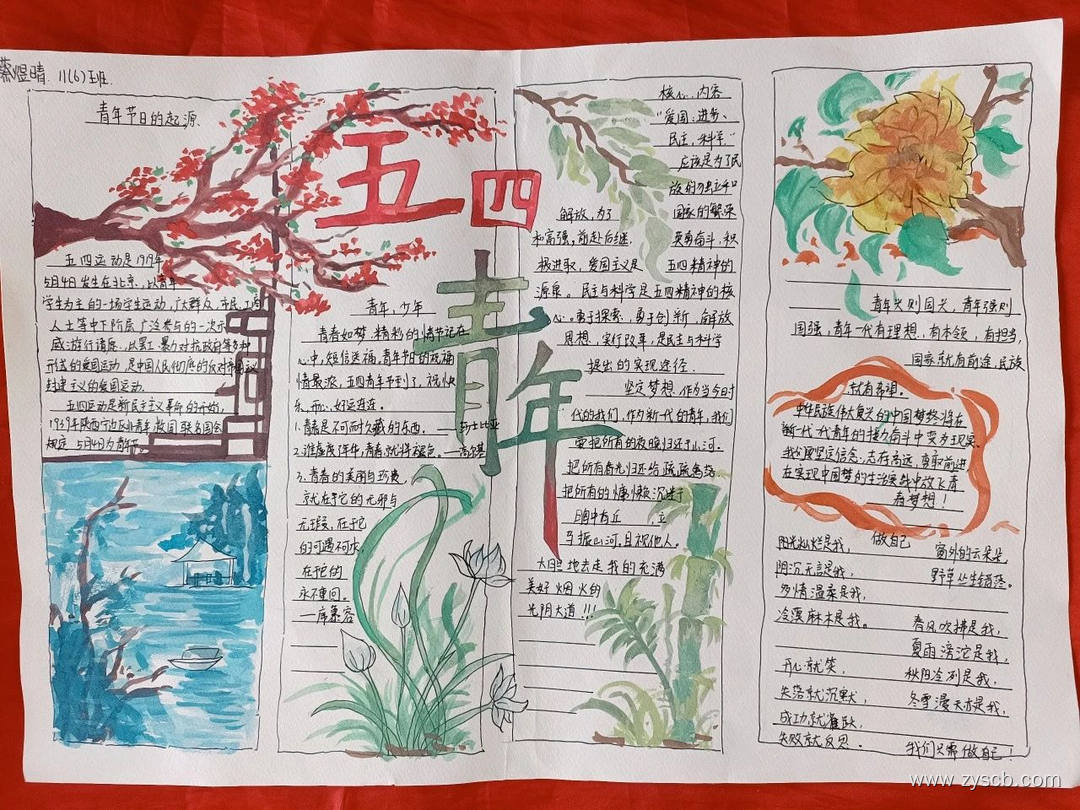 蔡煜晴 11(6)班
青年节日的起源
五四青年
五四运动是1919年
5月4日发生在北京,以青年
学生为主的一场学生运动,广大群众、市民、工商
人士等中下阶层广泛参与的一次示
威游行、请愿、以罢工、暴力对抗政府等多种
形式的爱国运动,是中国人民彻底的反对帝国主义
封建主义的爱国运动.
五四运动是新民主主义革命的开始,
1939年陕西宁边区青年救国联合国会
规定5月4日为青年节
青年,少年
青春如梦,精彩的情节记在
心中,短信送福,青年节日的祝福
情最浓,五四青年节到了,祝快
乐、开心、好运连连。
1.青春是不可耐久藏的东西。——莎士比亚
2.谁虚度年华,青春就将褪色。——
3.青春的美丽与珍贵
就在于它的无邪与
无瑕,在于它
的可遇不可求
在于它的
永不重回。
—席慕容
核心内容
"爱国、进步、
民主、科学"
应该是为了民
族的独立和
解放,为了国家的繁荣
和富强,前赴后继,英勇奋斗,积
极进取,爱国主义是五四精神的
源泉。民主与科学是五四精神的核
心。勇于探索、勇于创新、解放
思想、实行改革,是民主与科学
提出的实现途径.
坚定梦想.作为当今时
代的我们,作为新一代的青年,我们
要把所有的夜晚归还于山河.
把所有春光归还给疏疏篱落
把所有的慵懒沉迷于
胸中有丘,立
马振山河,且视他人。
大胆地去走我的充满
美好烟火的
光阴大道!!!
青年兴则国兴,青年强则
国强,青年一代有理想、有本领、有担当,
国家就有前途,民族
就有希望。
中华民族伟大复兴的中国梦终将在
一代代青年的接力奋斗中变为现实
我们要坚定信念、志在高远、勇敢前进
在实现中国梦的生活实践中放飞青
春梦想!
做自己
阳光灿烂是我,窗外的云朵是,
阴沉无言是我,野草丛生错落。
多情温柔是我,
冷漠麻木是我。春风吹拂是我,
夏雨滂沱是我,
开心就笑,秋阳冷冽是我,
失落就沉默,冬雪漫天亦是我,
成功就雀跃,
失败就反思。我们只需做自己!
www.zyscb.com